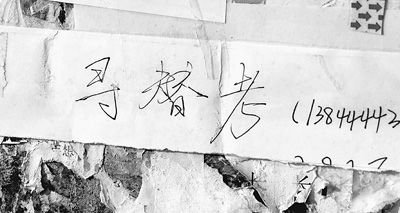 寻替考(13844443